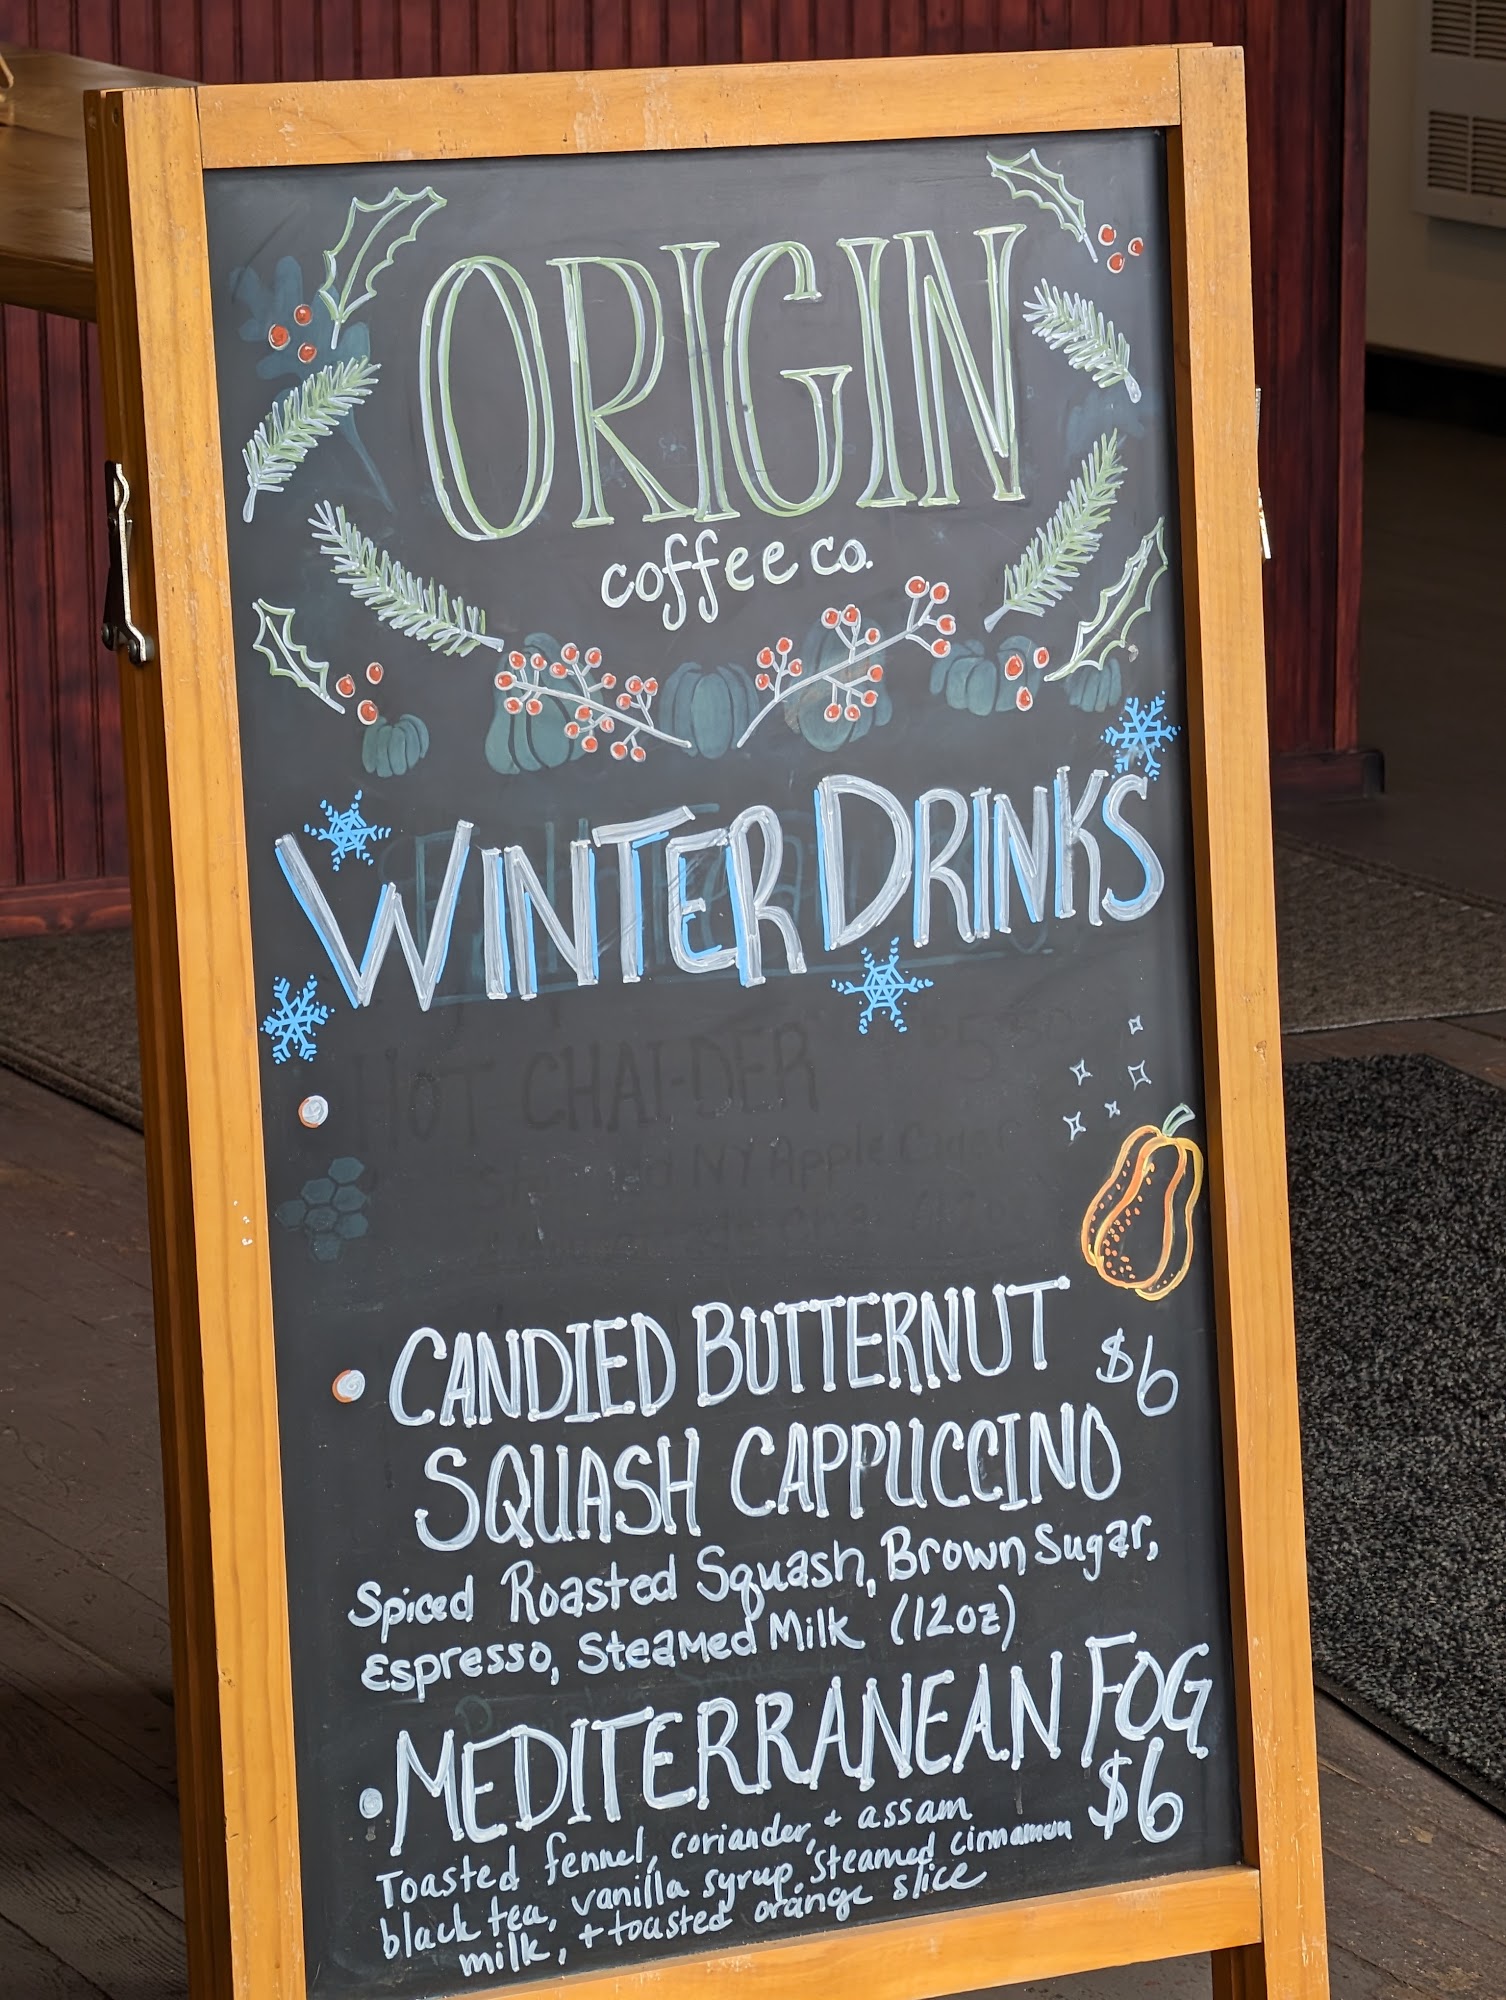 ORIGIN
coffee co.
WINTER DRINKS
HOT CHAI-DER
NY Apple Cider
• CANDIED BUTTERNUT
$6
SQUASH CAPPUCCINO
Spiced Roasted Squash, Brown Sugar,
Espresso, Steamed Milk (12oz)
• MEDITERRANEAN FOG
$6
Toasted fennel, coriander, + assam
black tea, vanilla syrup, steamed cinnamon
milk, + toasted orange slice